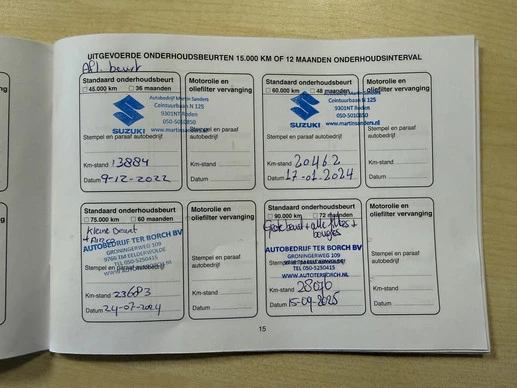 UITGEVOERDE ONDERHOUDSBEURTEN 15.000 KM OF 12 MAANDEN ONDERHOUDSINTERVAL
Afl. beurt
Standaard onderhoudsbeurt
45.000 km 36 maanden
Autobedrijf Martin Sanders
Ceintuurbaan N 125
9301NT Roden
050-5010850
www.martinsanders.nl
SUZUKI
Stempel en paraaf autobedrijf
Km-stand 13884
Datum 9-12-2022
Motorolie en
oliefilter vervanging
Stempel en paraaf
autobedrijf
Km-stand
Datum
Standaard onderhoudsbeurt
60.000 km 48 maanden
Autobedrijf Martin Sanders
Ceintuurbaan N 125
9301NT Roden
050-5010850
www.martinsanders.nl
SUZUKI
Stempel en paraaf autobedrijf
Km-stand 20462
Datum 17-01-2024
Motorolie en
oliefilter vervanging
Stempel en paraaf
autobedrijf
Km-stand
Datum
Standaard onderhoudsbeurt
75.000 km 60 maanden
Kleine beurt
AUTOBEDRIJF TER BORCH BV
GRONINGERWEG 109
9766 TM EELDERWOLDE
TEL 050-5250415
WWW.AUTOTERBORCH.NL
Km-stand 23683
Datum 24-07-2024
Motorolie en
oliefilter vervanging
Stempel en paraaf
autobedrijf
Km-stand
Datum
Standaard onderhoudsbeurt
90.000 km 72 maanden
Grote beurt + alle filters +
bougies
AUTOBEDRIJF TER BORCH BV
GRONINGERWEG 109
9766 TM EELDERWOLDE
TEL 050-5250415
WWW.AUTOTERBORCH.NL
Km-stand 28046
Datum 15-09-2025
Motorolie en
oliefilter vervanging
Stempel en paraaf
autobedrijf
Km-stand
Datum
15